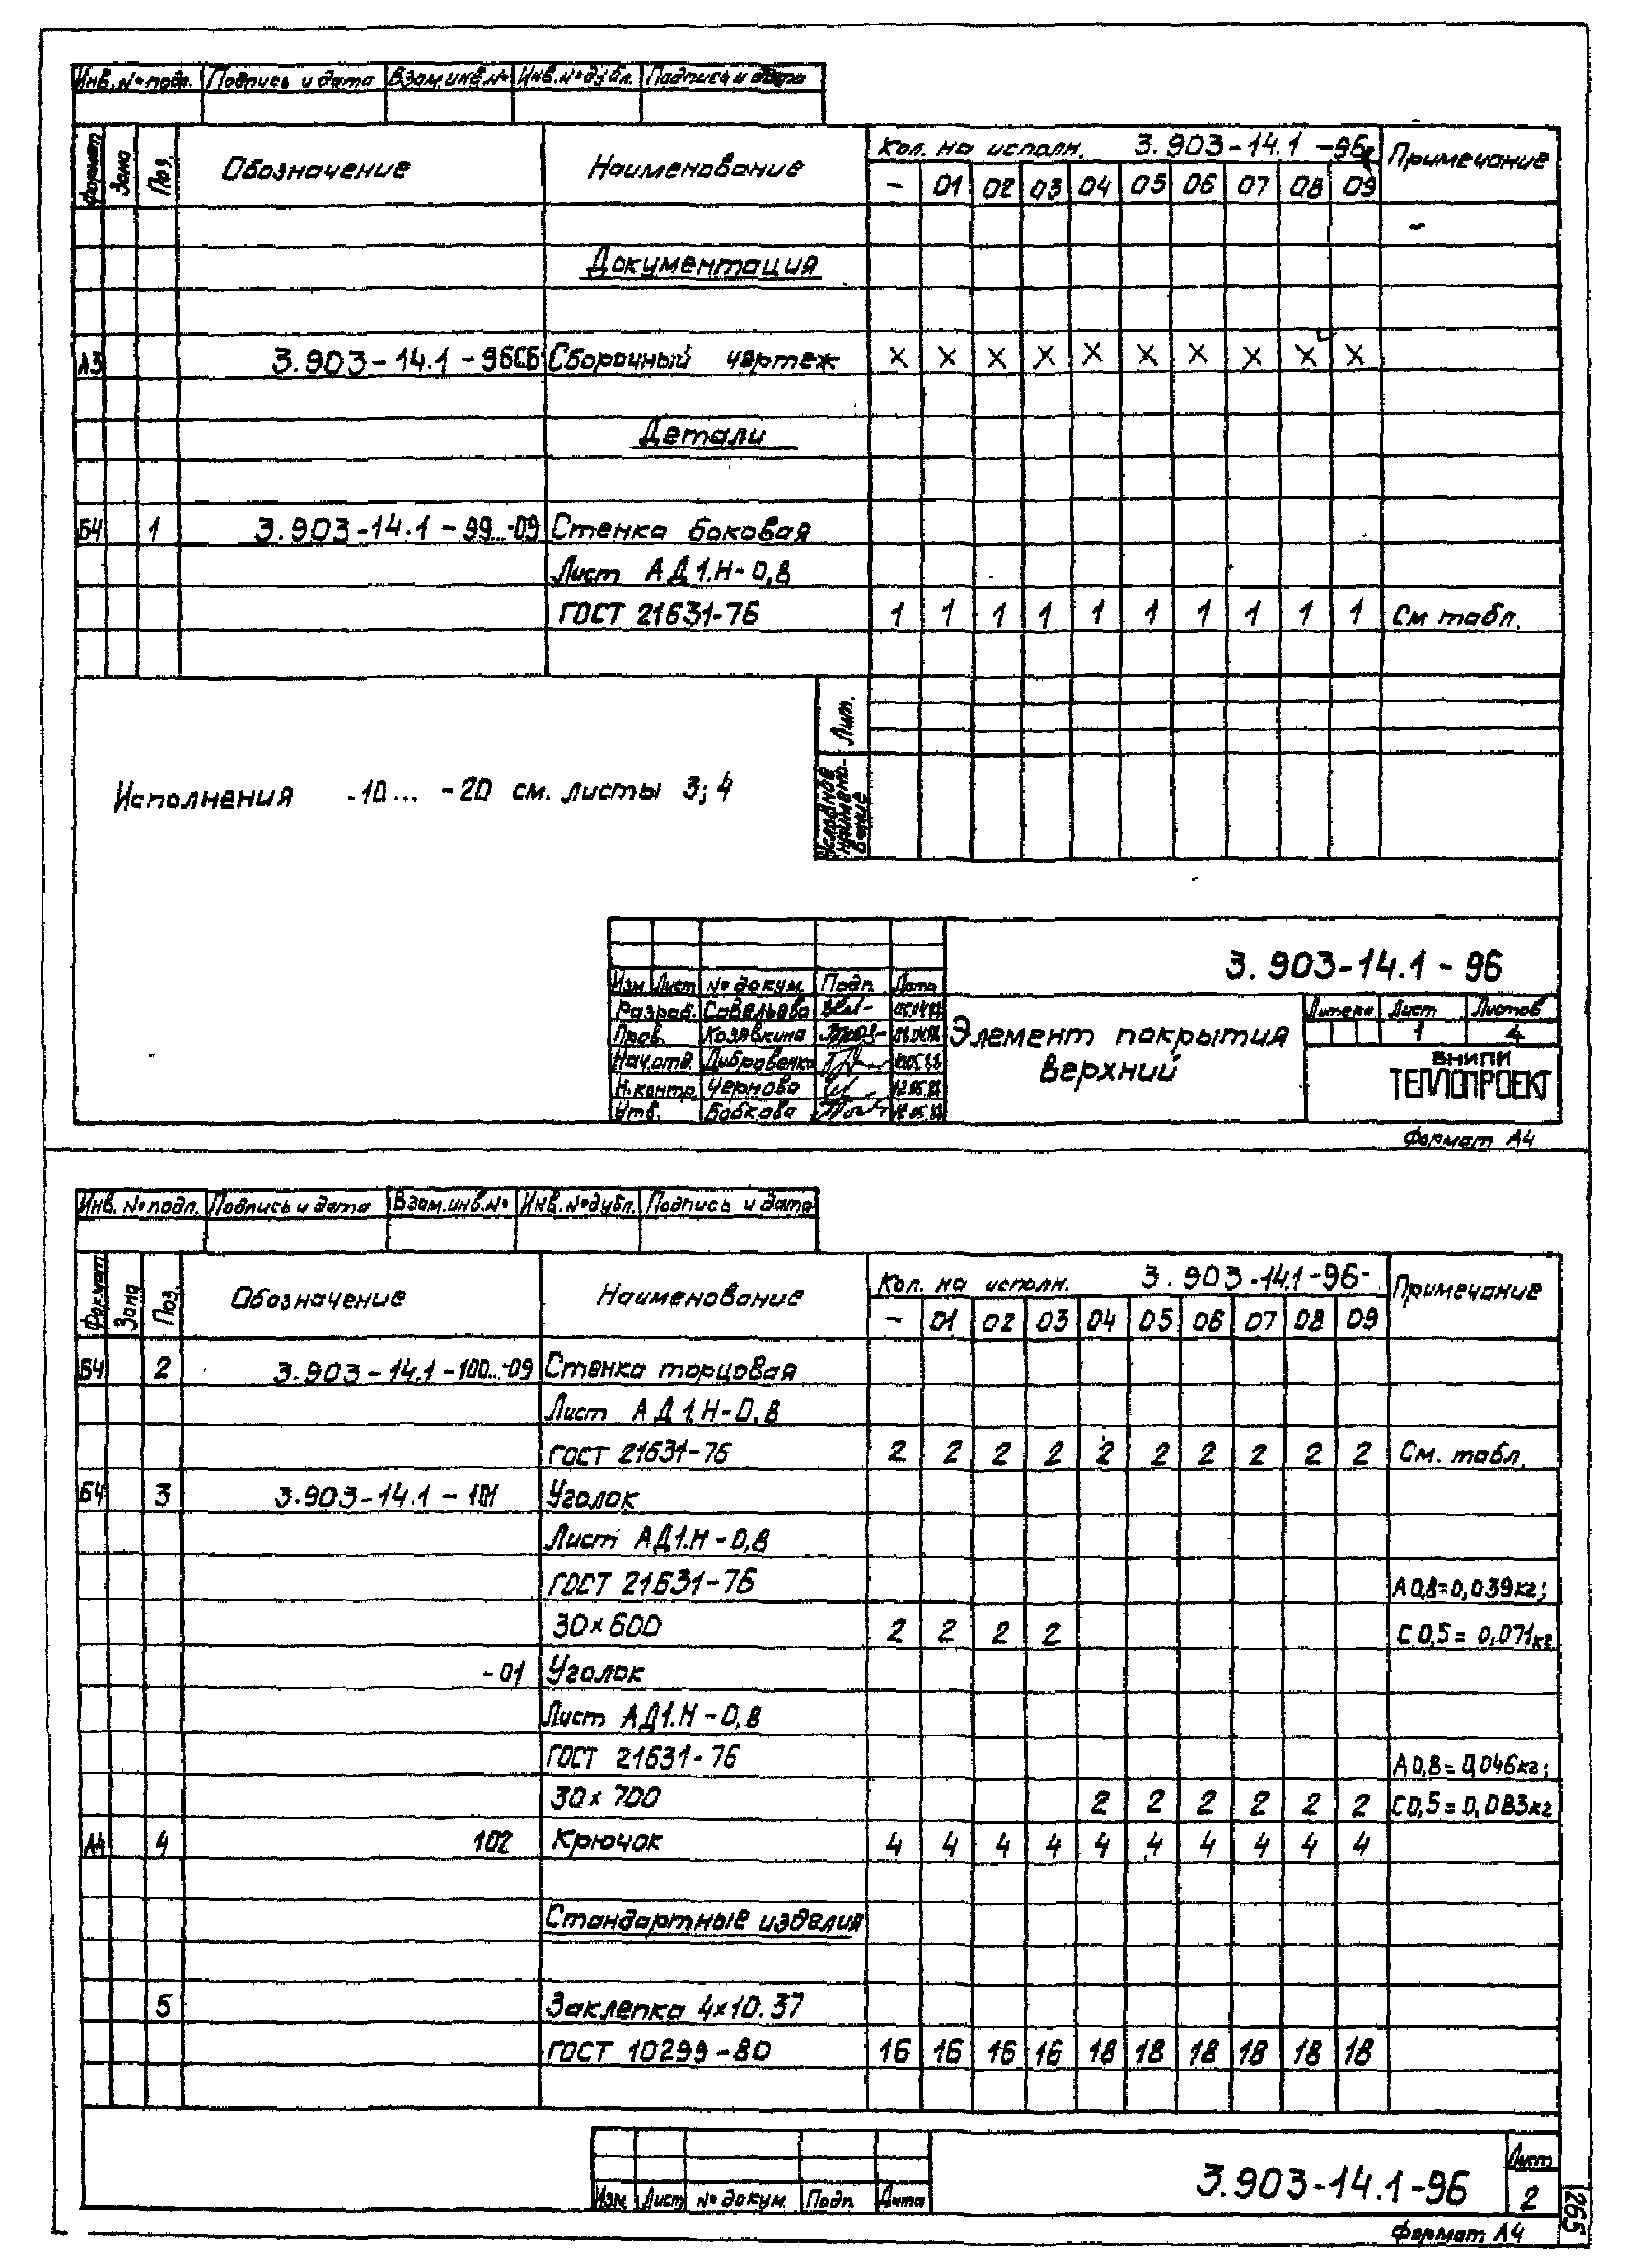 Инв. № подл. Подпись и дата Взам. инв. № Инв. № дубл. Подпись и дата
Формат Зона Поз. Обозначение Наименование Кол. на исполн. 3.903-14.1-96 Примечание
- 01 02 03 04 05 06 07 08 09
Документация
А3 3.903-14.1-96СБ Сборочный чертеж X X X X X X X X X X
Детали
Б4 1 3.903-14.1-99...-09 Стенка боковая
Лист АД1.Н-0,8
ГОСТ 21631-76 1 1 1 1 1 1 1 1 1 1 См табл.
Лит.
Исполнения -10... -20 см. листы 3; 4
Условное наименование
3.903-14.1-96
Изм. Лист № докум. Подп. Дата
Разраб. Савельева
Пров. Козявкина
Нач.отд. Дибровенко
Н.контр. Чернова
Утв. Бобкова
Элемент покрытия
верхний
Литера Лист Листов
1 4
ВНИПИ
ТЕПЛОПРОЕКТ
Формат А4
Инв. № подл. Подпись и дата Взам. инв. № Инв. № дубл. Подпись и дата
Формат Зона Поз. Обозначение Наименование Кол. на исполн. 3.903-14.1-96- Примечание
- 01 02 03 04 05 06 07 08 09
Б4 2 3.903-14.1-100...-09 Стенка торцовая
Лист АД1.Н-0,8
ГОСТ 21631-76 2 2 2 2 2 2 2 2 2 2 См. табл.
Б4 3 3.903-14.1-101 Уголок
Лист АД1.Н-0,8
ГОСТ 21631-76 А0,8=0,039кг;
30×600 2 2 2 2 С0,5=0,071кг
-01 Уголок
Лист АД1.Н-0,8
ГОСТ 21631-76 А0,8=0,046кг;
30×700 2 2 2 2 2 2 С0,5=0,083кг
А4 4 102 Крючок 4 4 4 4 4 4 4 4 4 4
Стандартные изделия
5 Заклепка 4×10.37
ГОСТ 10299-80 16 16 16 16 18 18 18 18 18 18
Изм. Лист № докум. Подп. Дата
3.903-14.1-96
Лист
2
Формат А4
265